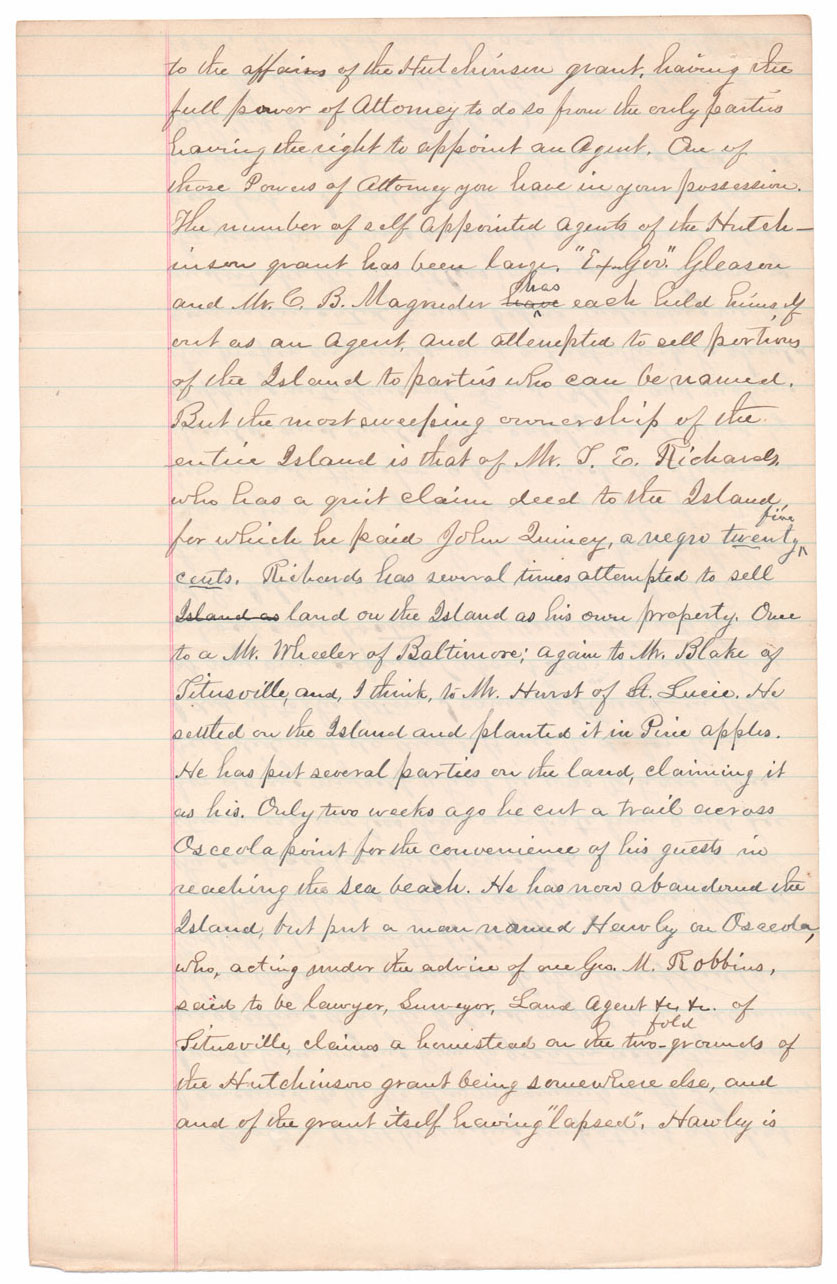 to the affairs of the Hutchinson grant, having the
full power of Attorney to do so from the only parties
having the right to appoint an Agent. On of
those Powers of Attorney you have in your possession.
The number of self appointed agents of the Hutch-
inson grant has been large. "Ex-Gov." Gleason
and Mr. C. B. Magruder have has each held himself
out as an Agent, and attempted to sell portions
of the Island to parties who can be named.
But the most sweeping ownership of the
entire Island is that of Mr. T. E. Richards,
who has a quit claim deed to the Island,
for which he paid John Quincy, a negro twenty five
cents. Richards has several times attempted to sell
Island as land on the Island as his own property. Once
to a Mr. Wheeler of Baltimore; again to Mr. Blake of
Titusville, and, I think, to Mr. Hurst of St. Lucie. He
settled on the Island and planted it in Pine apples.
He has put several parties on the land, claiming it
as his. Only two weeks ago he cut a trail across
Osceola point for the convenience of his guests in
reaching the sea beach. He has now abandoned the
Island, but put a man named Hawly on Osceola,
who, acting under the advice of one Geo. M. Robbins,
said to be lawyer, Surveyor, Land Agent &c &c. of
Titusville, claims a homestead on the two-fold grounds of
the Hutchinson grant being somewhere else, and
and of the grant itself having "lapsed". Hawley is